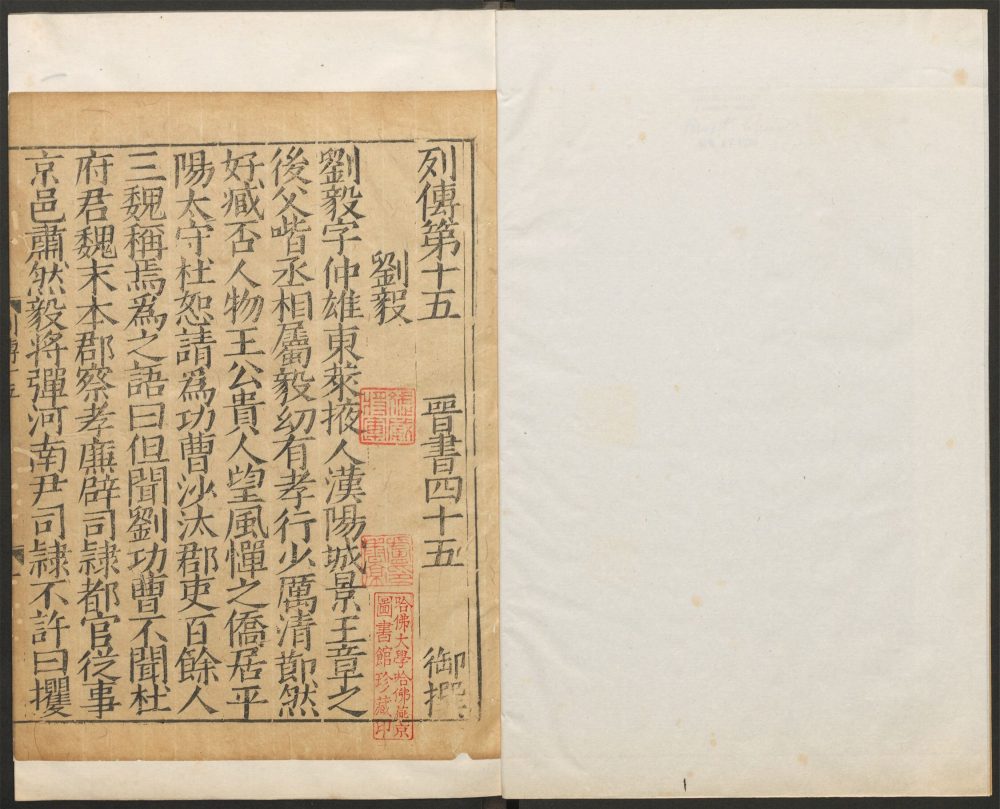 列傳第十五 晉書四十五 御撰
劉毅
劉毅字仲雄東萊掖人漢陽城景王章之
後父喈丞相屬毅幼有孝行少厲清節然
好臧否人物王公貴人望風憚之僑居平
陽太守杜恕請爲功曹沙汰郡吏百餘人
三魏稱焉爲之語曰但聞劉功曹不聞杜
府君魏末本郡察孝廉辟司隷都官從事
京邑肅然毅將彈河南尹司隷不許曰攫
哈佛大學哈佛燕京
圖書館珍藏印